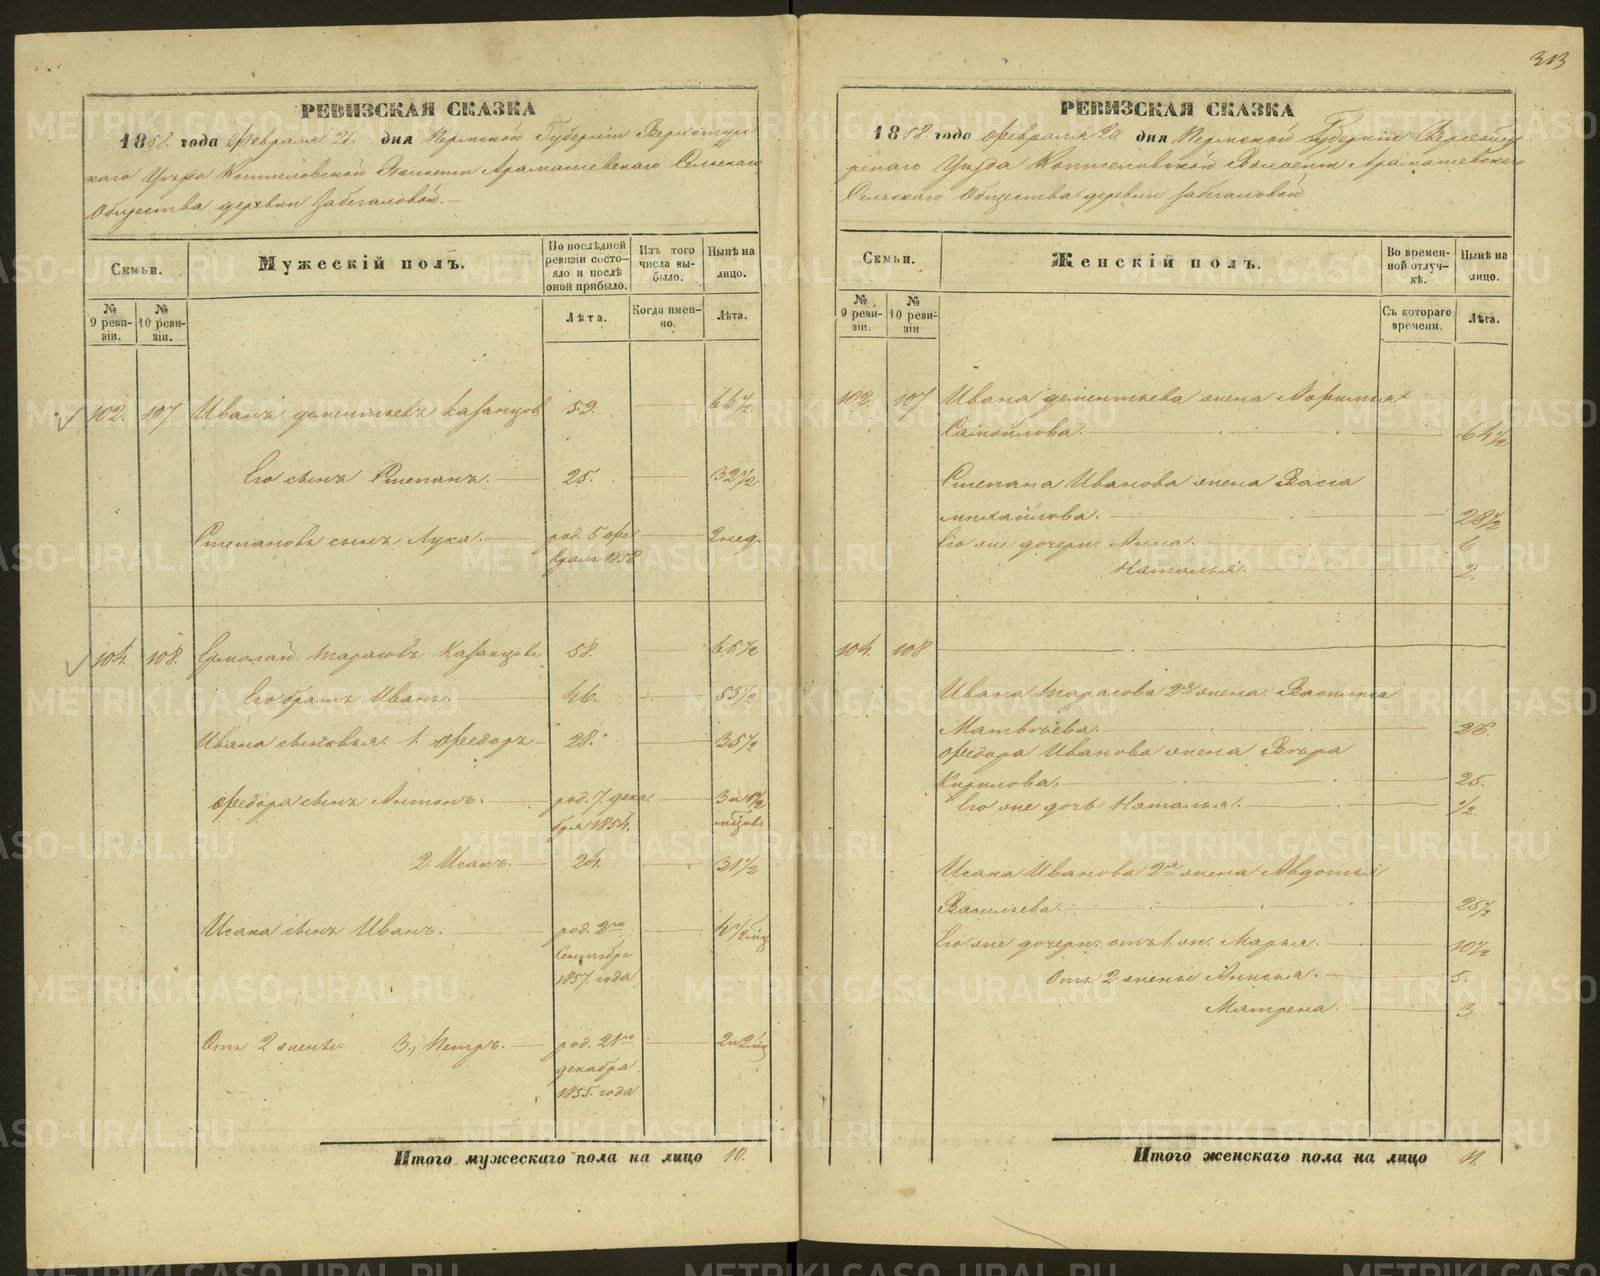 313
РЕВИЗСКАЯ СКАЗКА
1858. года Февраля 21. дня Пермской Губерніи Верхотурс
каго Уѣзда Коптеловской Волости Арамашевскаго Сельскаго
Общества деревни Забегаловой.
Семьи.
Мужескій полъ.
По послѣдней ревизіи состояло и послѣ оной прибыло.
Изъ того числа выбыло.
Нынѣ на лицо.
№ 9 ревизіи.
№ 10 ревизіи.
Лѣта.
Когда именно.
Лѣта.
102. 107 Иванъ дементьевъ Казанцов 59. 66 1/2
Его сынъ Степанъ. 25. 32 1/2
Степановъ сынъ Лука. род. 5 фев 2 нед.
враля 1858
104. 108. Ермолай Тарасовъ Казанцовъ 58. 65 1/2
Его братъ Иванъ. 46. 53 1/2
Ивана сыновья: 1. Феодоръ 28. 35 1/2
Феодора сынъ Антонъ. род. 7 дека 3 и 1 1/2
бря 1854. мѣсов
2. Исакъ. 24. 31 1/2
Исака сынъ Иванъ. род. 2го
Сентября
1857 года
Отъ 2 жены: 3., Петръ. род. 21го
декабря
1855. года
Итого мужескаго пола на лицо 10.
РЕВИЗСКАЯ СКАЗКА
1858. года Февраля дня Пермской Губерніи Верхоту
рскаго Уѣзда Коптеловской Волости Арамашевскаго
Сельскаго Общества деревни Забегаловой
Семьи.
Женскій полъ.
Во временной отлучкѣ.
Нынѣ на лицо.
№ 9 ревизіи.
№ 10 ревизіи
Съ котораго времени.
Лѣта.
102. 107 Ивана дементьева жена
Самойлова. 64 1/2
Степана Иванова жена Васса
михайлова. 28 1/2
Его же дочери: Анна. 6
Наталья. 2.
104. 108
Ивана Тарасова 2я жена Василиса
Матвѣева.
Феодора Иванова жена Вѣра
Кирилова. 25.
Его же дочь Наталья. 1/2.
Исака Иванова 2я жена Авдотья
Васильева. 25 1/2
Его же дочери: отъ 1. ж. Марья. 10 1/2
Отъ 2 жены Анисья. 5.
Матрена. 3
Итого женскаго пола на лицо 11.
METRIKI.GASO-URAL.RU